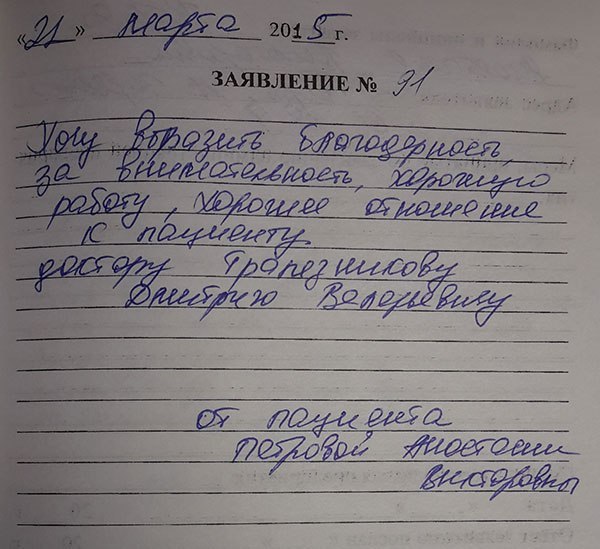 «21» марта 2015 г.
ЗАЯВЛЕНИЕ № 91
Хочу выразить благодарность,
за внимательность, хорошую
работу, хорошее отношение
к пациенту
доктору Трапезникову
Дмитрию Валерьевичу
от пациента
Петровой Анастасии
Викторовны